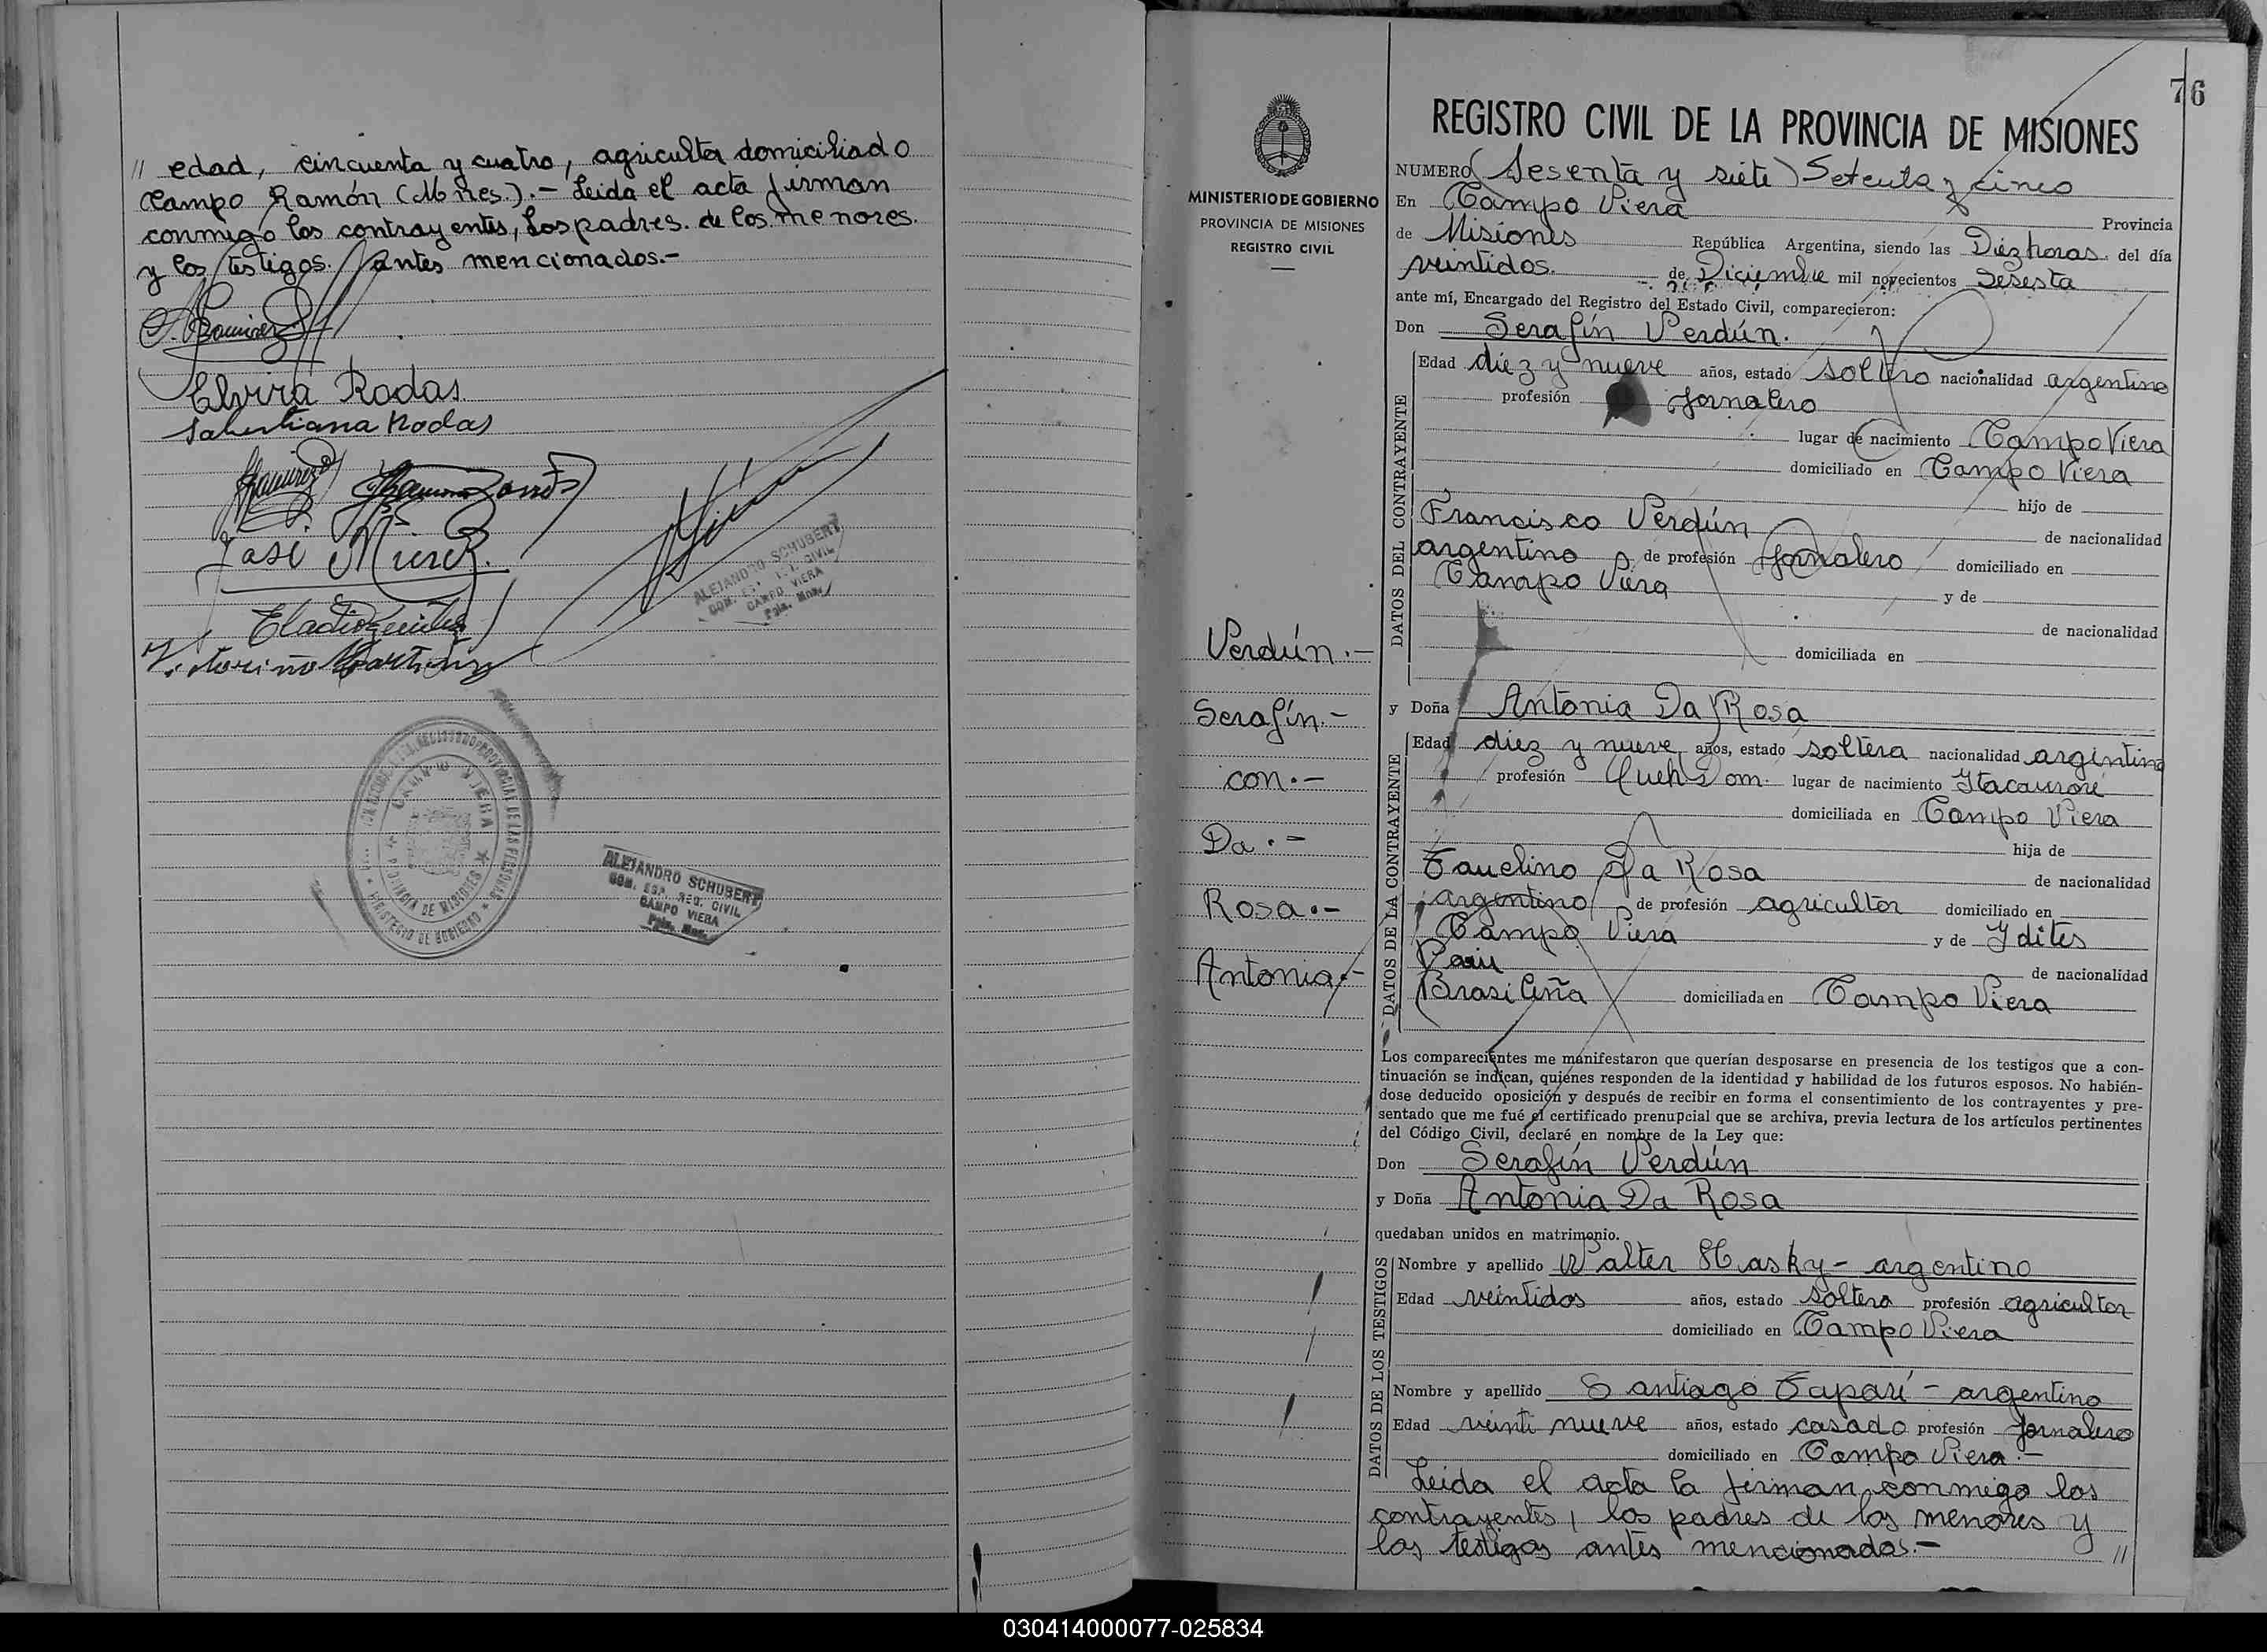 // edad, cincuenta y cuatro, agricultor domiciliado
Campo Ramón (Mnes.).- Leida el acta firman
conmigo los contrayentes, los padres de los menores
y los testigos antes mencionados.-
Elvira Rodas
Rodas
José
ALEJANDRO SCHUBERT
CAMPO VIERA
Victorino Martinez
CAMPO VIERA
PROVINCIA DE MISIONES
MINISTERIO DE GOBIERNO
ALEJANDRO SCHUBERT
REG. CIVIL
CAMPO VIERA
76
MINISTERIO DE GOBIERNO
PROVINCIA DE MISIONES
REGISTRO CIVIL
Verdún.-
Serafín.-
con.-
Da.-
Rosa.-
Antonia.-
REGISTRO CIVIL DE LA PROVINCIA DE MISIONES
NUMERO (Sesenta y siete) Setenta y cinco
En Campo Viera Provincia
de Misiones República Argentina, siendo las Diez horas del día
veintidos. de Diciembre mil novecientos Sesenta
ante mí, Encargado del Registro del Estado Civil, comparecieron:
Don Serafín Verdún.
DATOS DEL CONTRAYENTE
Edad diez y nueve años, estado soltero nacionalidad argentino
profesión Jornalero
lugar de nacimiento Campo Viera
domiciliado en Campo Viera
hijo de
Francisco Verdún de nacionalidad
argentino de profesión Jornalero domiciliado en
Campo Viera y de
de nacionalidad
domiciliada en
y Doña Antonia Da Rosa
DATOS DE LA CONTRAYENTE
Edad diez y nueve años, estado soltera nacionalidad argentina
profesión Queh Dom. lugar de nacimiento Itacaruaré
domiciliada en Campo Viera
hija de
Da Rosa de nacionalidad
argentino de profesión agricultor domiciliado en
Campo Viera y de Ydites
de nacionalidad
Brasileña domiciliada en Campo Viera
Los comparecientes me manifestaron que querían desposarse en presencia de los testigos que a con-
tinuación se indican, quiénes responden de la identidad y habilidad de los futuros esposos. No habién-
dose deducido oposición y después de recibir en forma el consentimiento de los contrayentes y pre-
sentado que me fué el certificado prenupcial que se archiva, previa lectura de los artículos pertinentes
del Código Civil, declaré en nombre de la Ley que:
Don Serafín Verdún
y Doña Antonia Da Rosa
quedaban unidos en matrimonio.
DATOS DE LOS TESTIGOS
Nombre y apellido Walter Hasky - argentino
Edad veintidos años, estado soltero profesión agricultor
domiciliado en Campo Viera
Nombre y apellido Santiago Taparí - argentino
Edad veinti nueve años, estado casado profesión Jornalero
domiciliado en Campo Viera.-
Leida el acta la firman conmigo los
contrayentes, los padres de los menores y
los testigos antes mencionados.- //
030414000077-025834